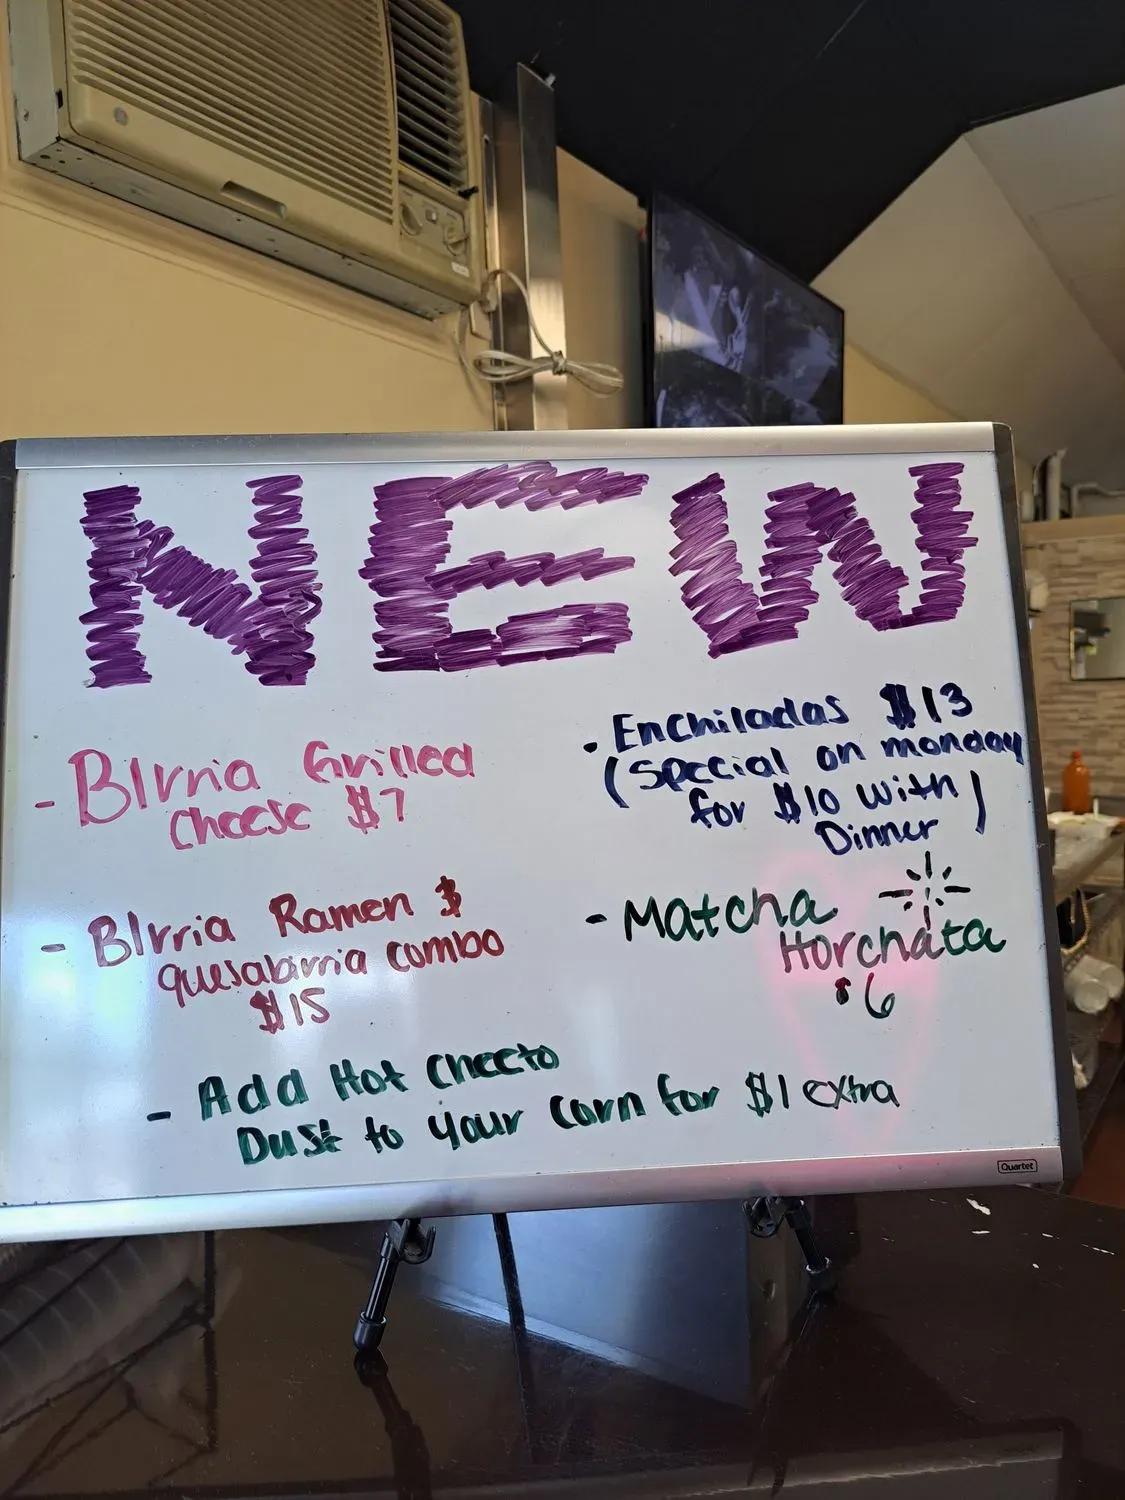 NEW
- Birria Grilled
cheese $7
- Birria Ramen $
quesabirria combo
$15
• Enchiladas $13
(special on monday
for $10 with)
Dinner
- Matcha
Horchata
$6
- Add Hot Cheeto
Dust to your corn for $1 extra
Quartet